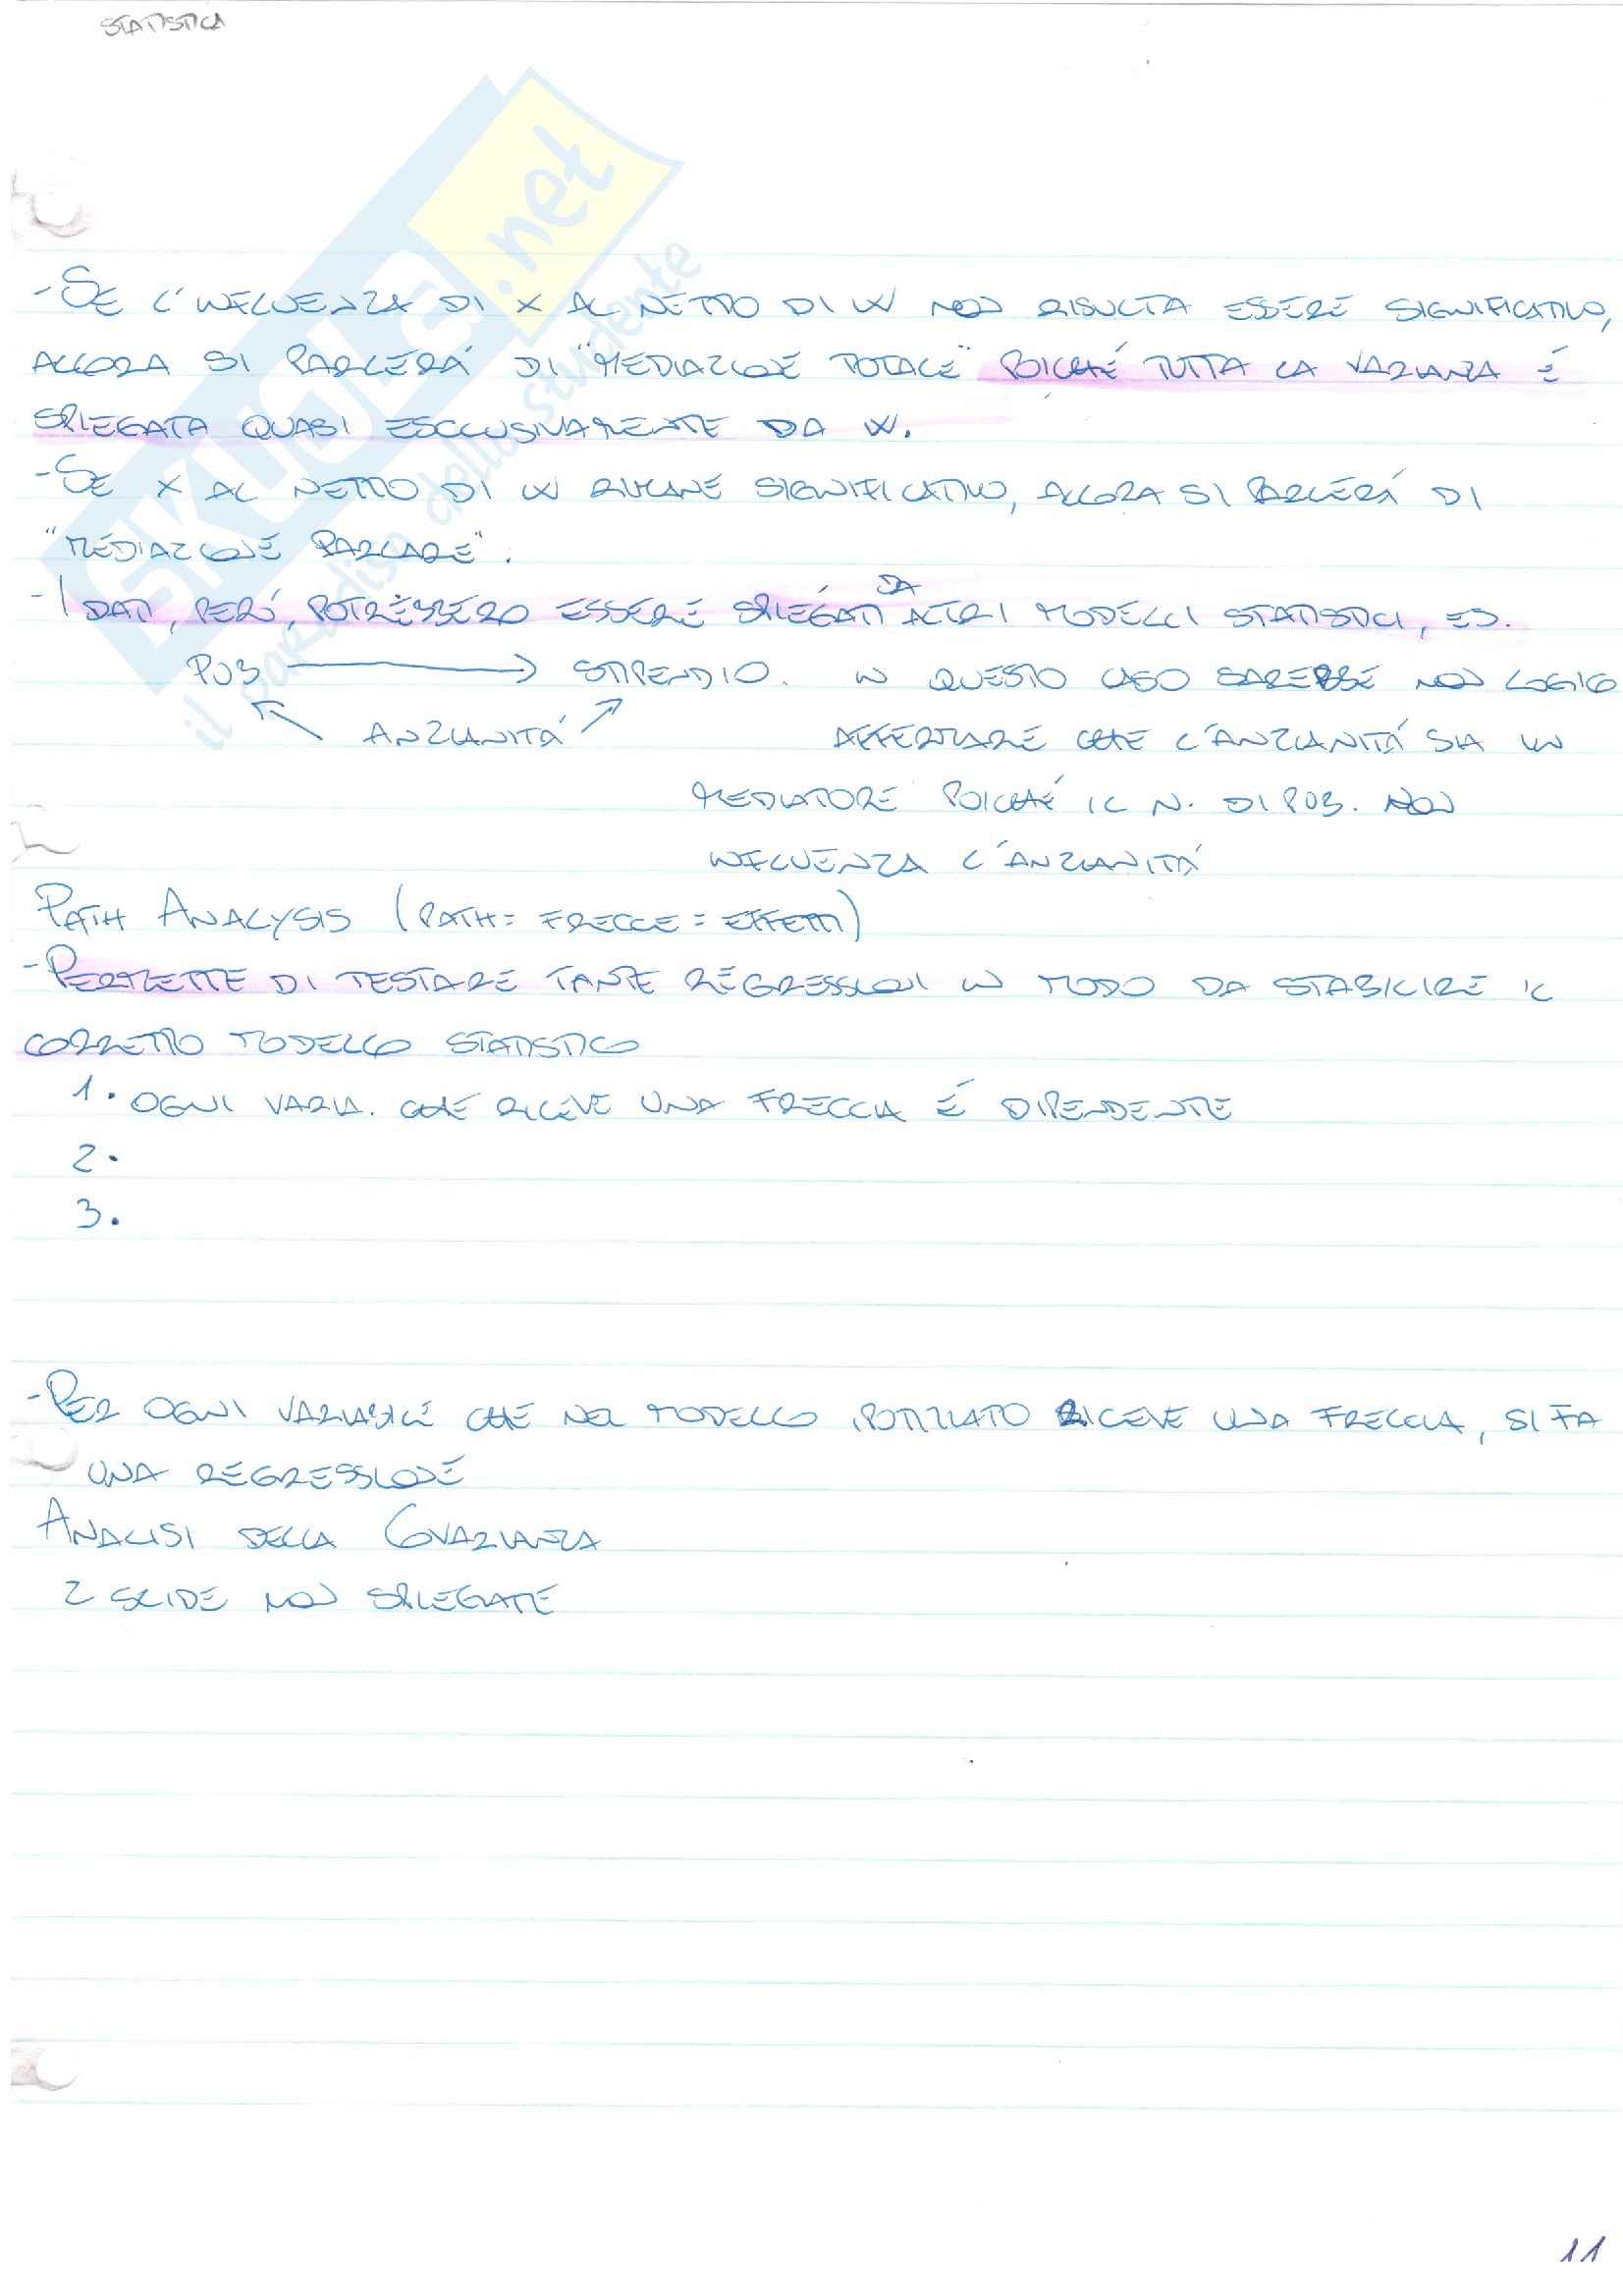 STATISTICA
SKUOLA.net
il paradiso dello studente
- SE L'INFLUENZA DI X AL NETTO DI W NON RISULTA ESSERE SIGNIFICATIVO,
ALLORA SI PARLERÁ DI "MEDIAZIONE TOTALE" POICHÉ TUTTA LA VARIANZA É
SPIEGATA QUASI ESCLUSIVAMENTE DA W.
- SE X AL NETTO DI W RIMANE SIGNIFICATIVO, ALLORA SI PARLERÁ DI
"MEDIAZIONE PARZIALE".
- I DATI, PERÓ, POTREBBERO ESSERE SPIEGATI DA ALTRI MODELLI STATISTICI, ES.
PUB → STIPENDIO. IN QUESTO CASO SAREBBE NON LOGICO
ANZIANITÁ AFFERMARE CHE L'ANZIANITÁ SIA UN
MEDIATORE POICHÉ IL N. DI PUB. NON
INFLUENZA L'ANZIANITÁ
PATH ANALYSIS (PATH = FRECCE = EFFETTI)
- PERMETTE DI TESTARE TANTE REGRESSIONI IN MODO DA STABILIRE IL
CORRETTO MODELLO STATISTICO
1. OGNI VARIA. CHE RICEVE UNA FRECCIA É DIPENDENTE
2.
3.
- PER OGNI VARIABILE CHE NEL MODELLO IPOTIZZATO RICEVE UNA FRECCIA, SI FA
UNA REGRESSIONE
ANALISI DELLA COVARIANZA
2 SLIDE NON SPIEGATE
11